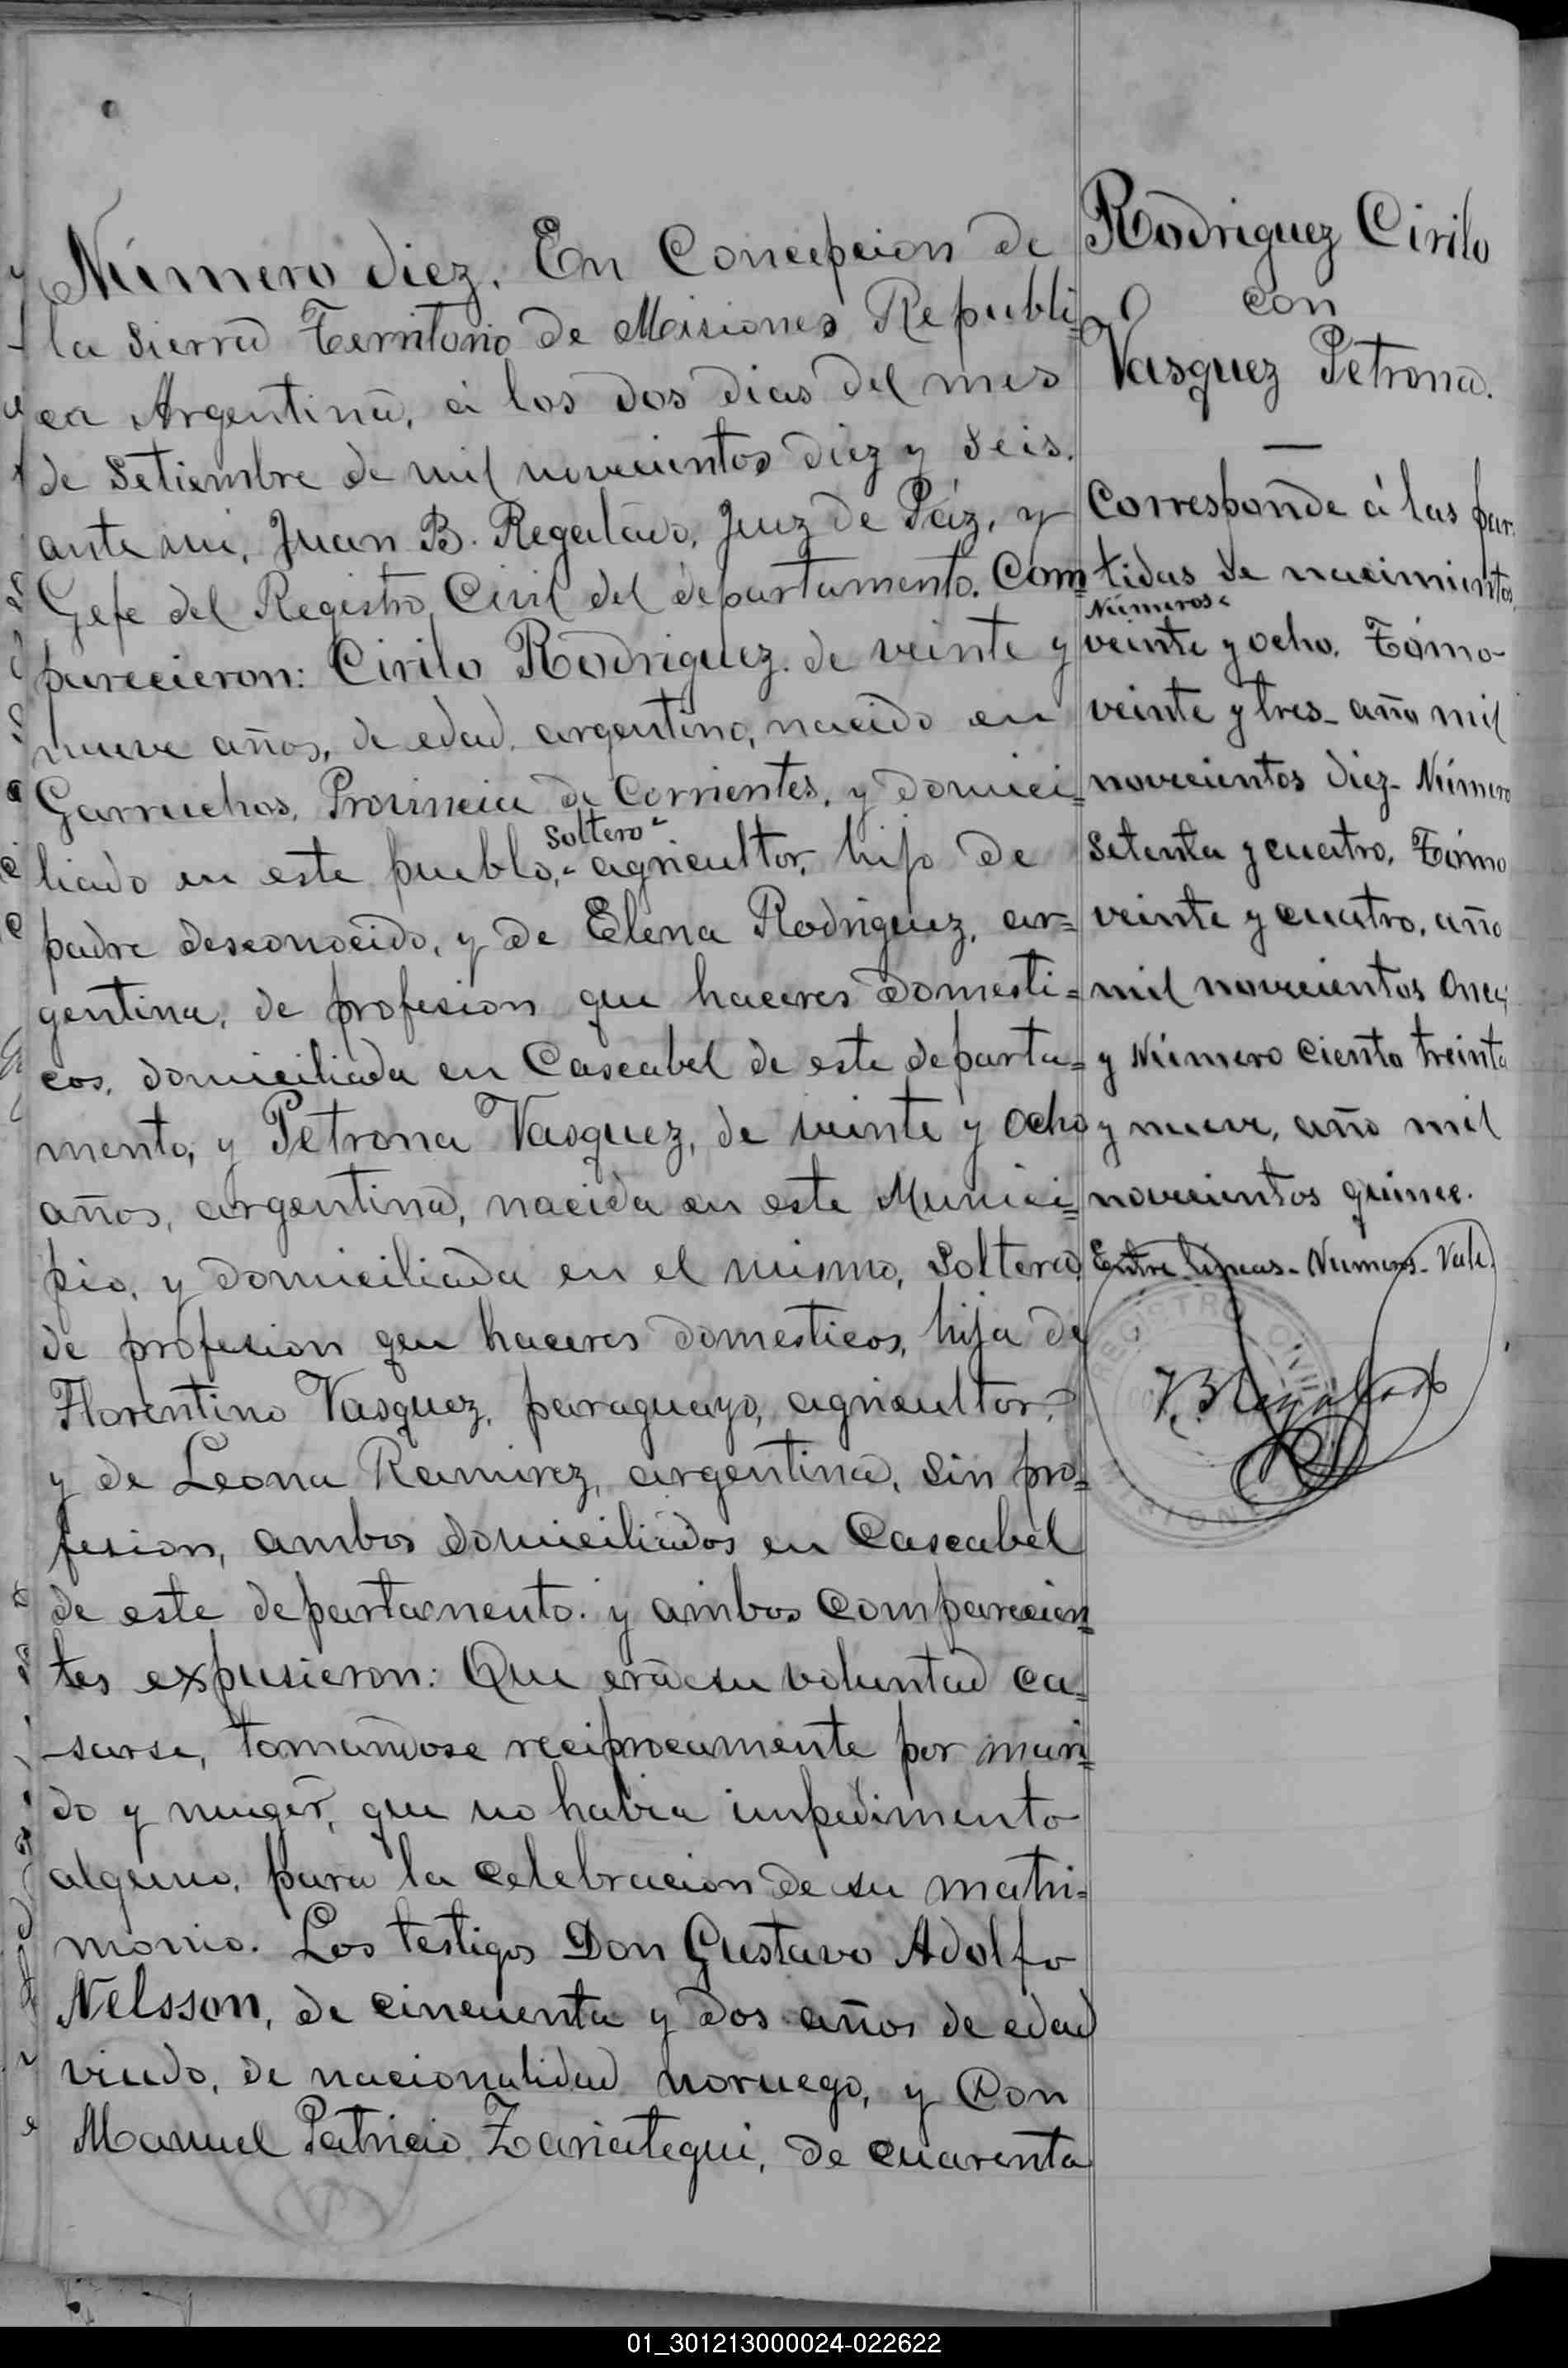 Número diez. En Concepcion de
la Sierra Territorio de Misiones Republi=
ca Argentina, á los dos dias del mes
de Setiembre de mil novecientos diez y seis.
ante mi, Juan B. Regalado, Juez de Páz, y
Gefe del Registro Civil del departamento. Com=
parecieron: Cirilo Rodriguez de veinte y
nueve años, de edad, argentino, nacido en
Garruchos, Provincia de Corrientes, y domici=
Soltero
liado en este pueblo, agricultor, hijo de
padre desconocido, y de Elena Rodriguez, ar=
gentina, de profesion que haceres domesti=
cos, domiciliada en Cascabel de este departa=
mento, y Petrona Vasquez, de veinte y ocho
años, argentina, nacida en este Munici=
pio, y domiciliada en el mismo, Soltera
de profesion que haceres domesticos, hija de
Florentino Vasquez, paraguayo, agricultor,
y de Leona Ramirez, argentina, sin pro=
fesion, ambos domiciliados en Cascabel
de este departamento. y ambos comparecien=
tes expusieron: Que era su voluntad ca=
sarse, tomandose reciprocamente por mari=
do y muger, que no habia impedimento
alguno, para la celebracion de su matri=
monio. Los testigos Don Gustavo Adolfo
Nelsson, de cincuenta y dos años de edad
viudo, de nacionalidad noruego, y Don
Manuel Patricio Zariategui, de cuarenta
Rodriguez Cirilo
con
Vasquez Petrona.
Corresponde á las par=
tidas de nacimientos,
Números
veinte y ocho, Tómo
veinte y tres- año mil
novecientos diez- Número
Setenta y cuatro, Tómo
veinte y cuatro, año
mil novecientos once,
y Número ciento treinta
y nueve, año mil
novecientos quince.
Entre lineas- Numeros- Vale.
REGISTRO CIVIL
J. B. Regalado
MISIONES
01_301213000024-022622